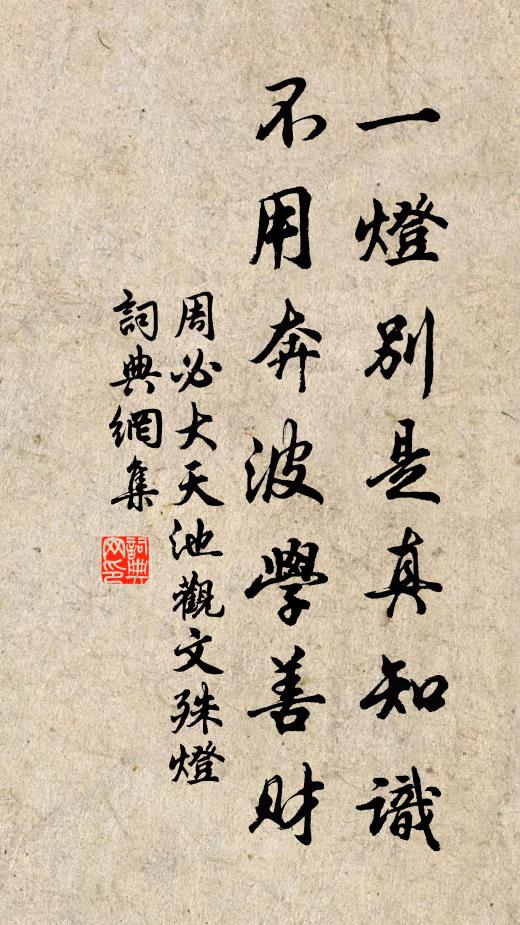 一燈別是真知識
不用奔波學善财
周必大天池觀文殊燈
詞典網集
詞典网印